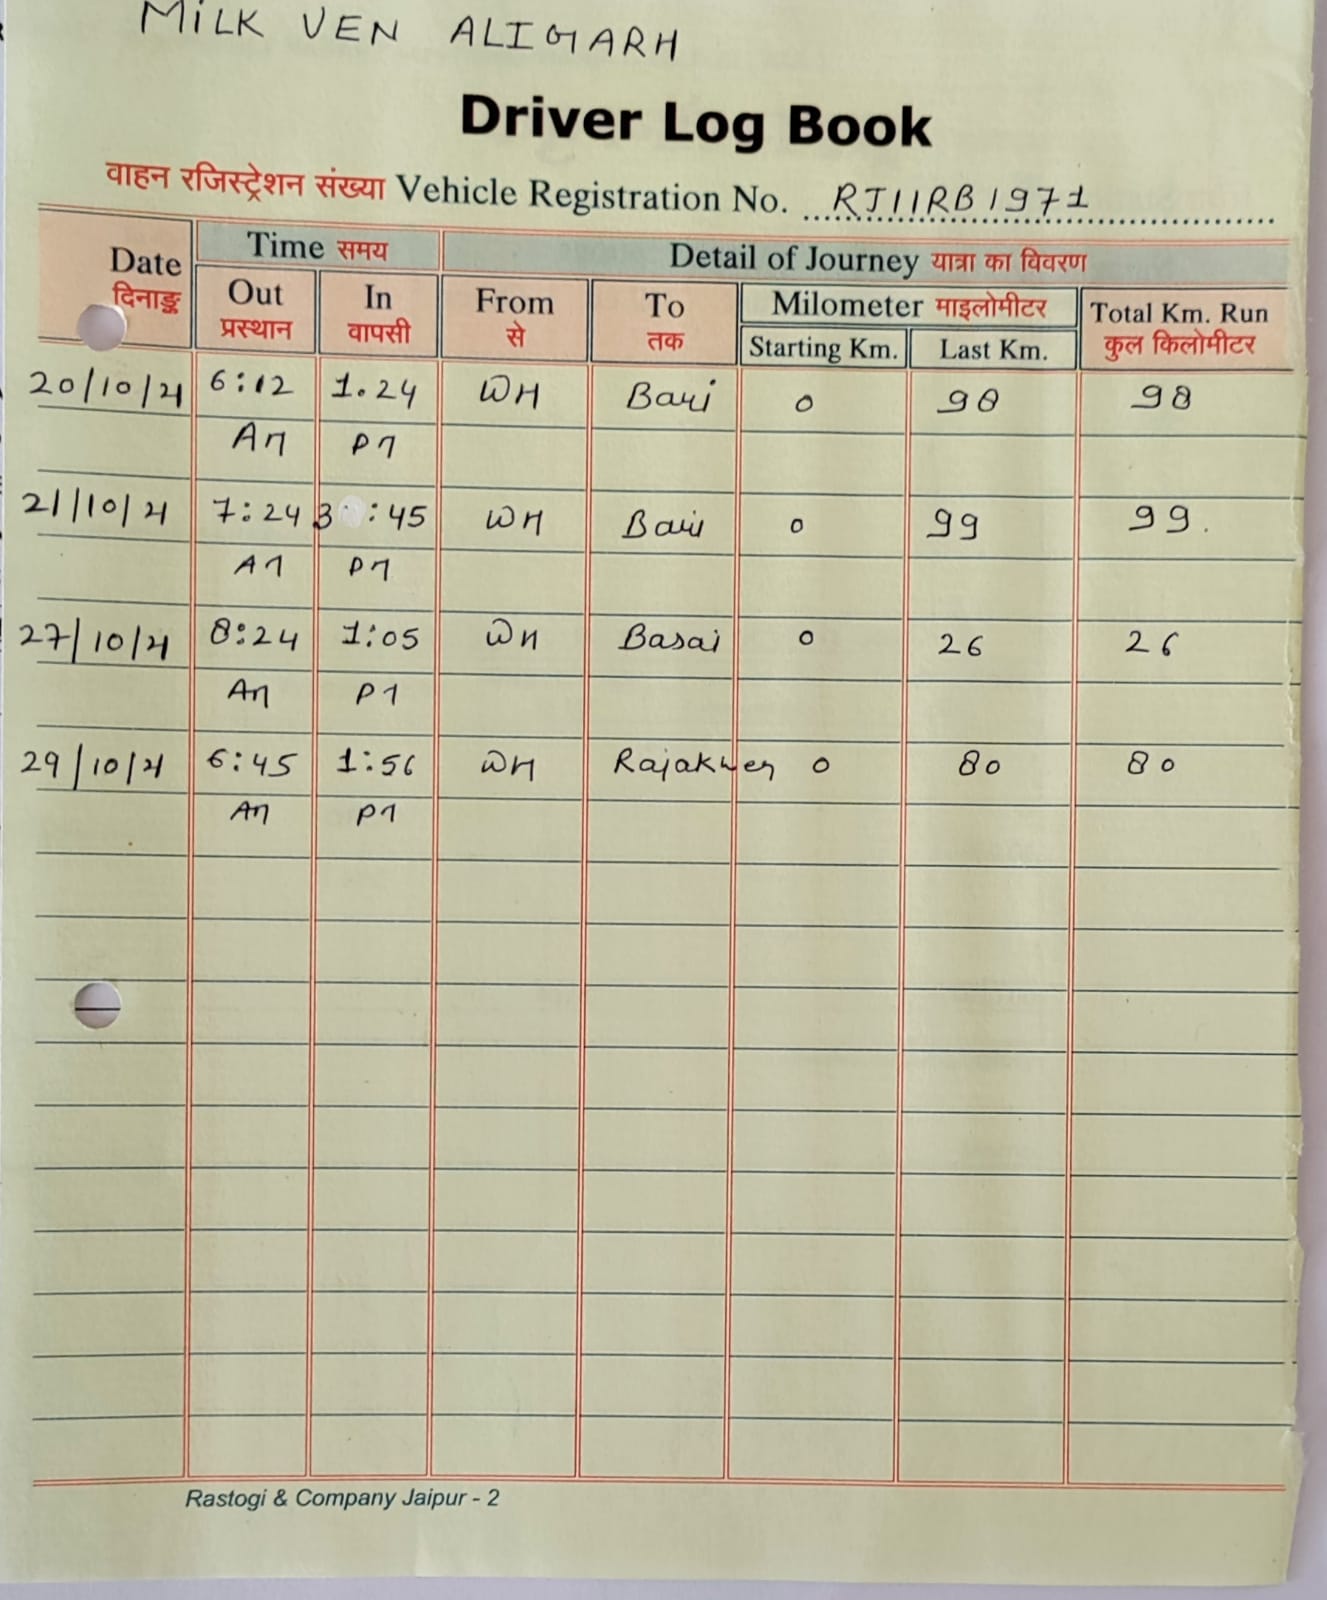 MILK VEN ALIGARH
Driver Log Book
वाहन रजिस्ट्रेशन संख्या Vehicle Registration No. RJ11RB1971
Date दिनाङ्क
Time समय
Out प्रस्थान
In वापसी
Detail of Journey यात्रा का विवरण
From से
To तक
Milometer माइलोमीटर
Starting Km. Last Km.
Total Km. Run कुल किलोमीटर
20/10/21 6:12 1.24 WH Bari 0 98 98
AM PM
21/10/21 7:24 3:45 WH Bari 0 99 99.
AM PM
27/10/21 8:24 1:05 WH Basai 0 26 26
AM PM
29/10/21 6:45 1:56 WH 0 80 80
AM PM
Rastogi & Company Jaipur - 2